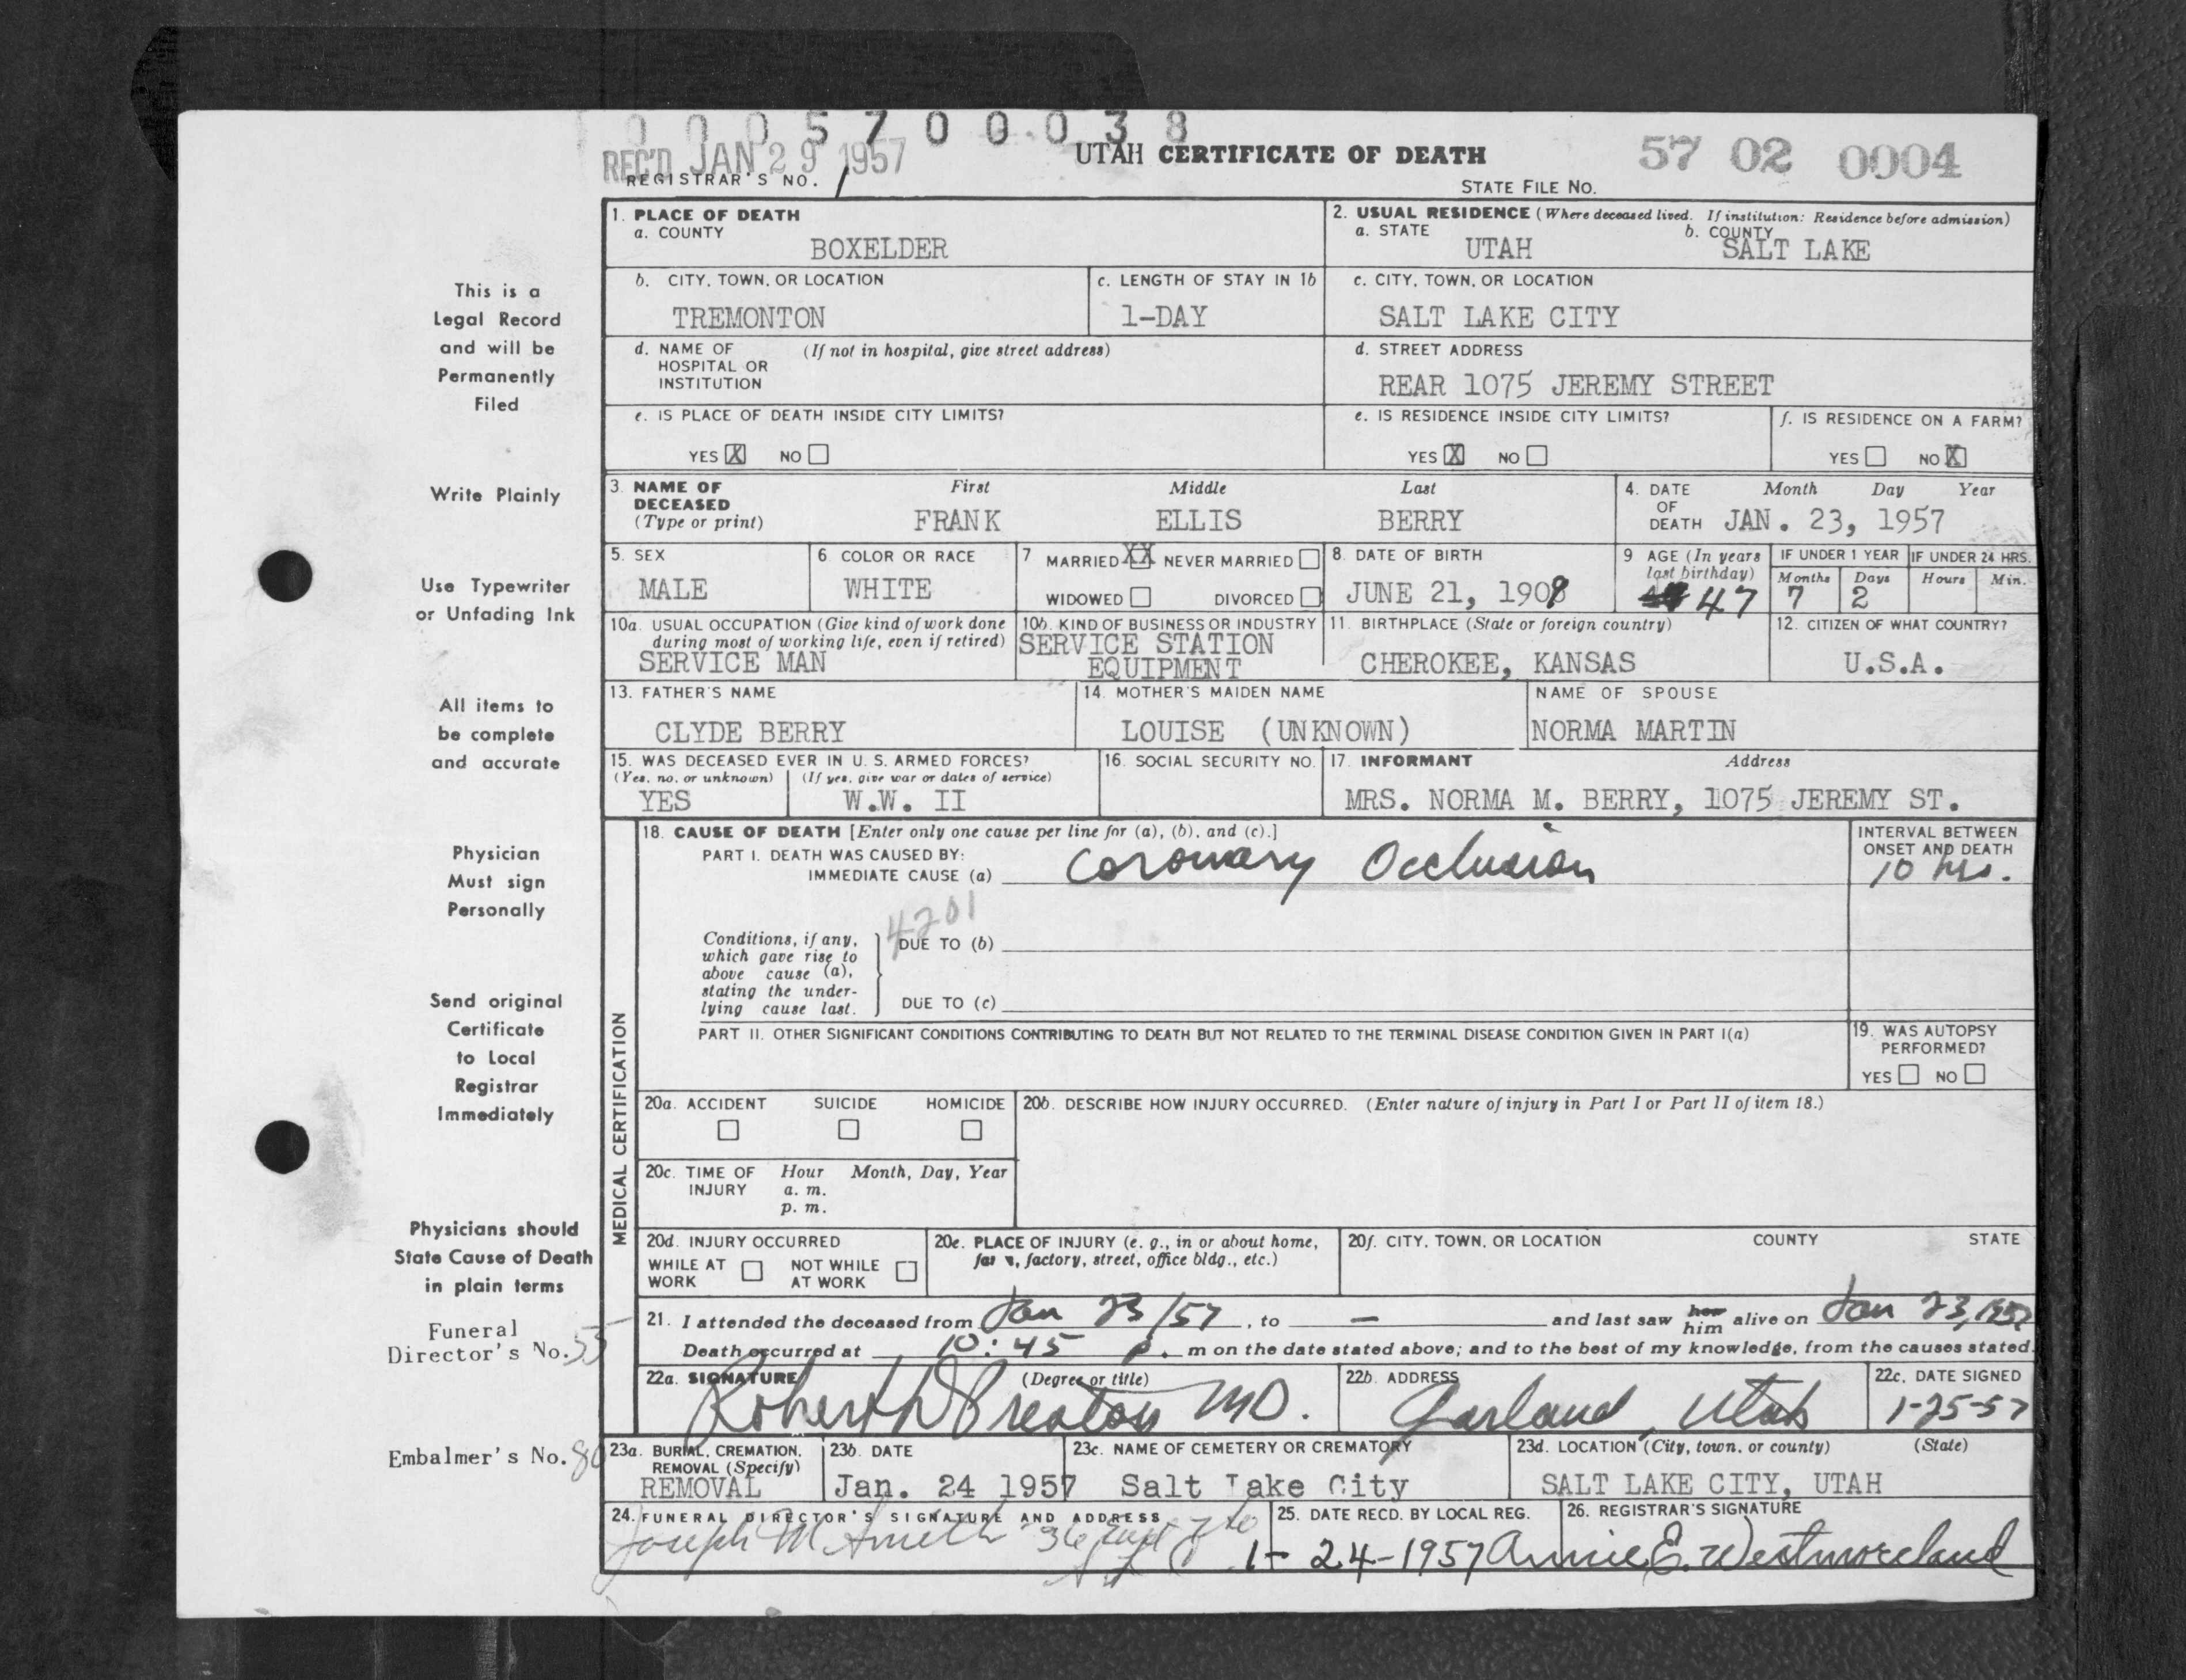 0 0 0 5 7 0 0 0 3 8
REC'D JAN 29 1957
UTAH CERTIFICATE OF DEATH
57 02 0004
REGISTRAR'S NO. 1
STATE FILE NO.
1. PLACE OF DEATH
a. COUNTY
BOXELDER
2. USUAL RESIDENCE (Where deceased lived. If institution: Residence before admission)
a. STATE
UTAH
b. COUNTY
SALT LAKE
b. CITY, TOWN, OR LOCATION
TREMONTON
c. LENGTH OF STAY IN 1b
1-DAY
c. CITY, TOWN, OR LOCATION
SALT LAKE CITY
d. NAME OF HOSPITAL OR INSTITUTION
(If not in hospital, give street address)
d. STREET ADDRESS
REAR 1075 JEREMY STREET
e. IS PLACE OF DEATH INSIDE CITY LIMITS?
YES X NO
e. IS RESIDENCE INSIDE CITY LIMITS?
YES X NO
f. IS RESIDENCE ON A FARM?
YES NO X
3. NAME OF DECEASED
(Type or print)
First Middle Last
FRANK ELLIS BERRY
4. DATE OF DEATH
Month Day Year
JAN. 23, 1957
5. SEX
MALE
6. COLOR OR RACE
WHITE
7 MARRIED XX NEVER MARRIED
WIDOWED DIVORCED
8. DATE OF BIRTH
JUNE 21, 1909
9 AGE (In years last birthday)
47
IF UNDER 1 YEAR
Months Days
7 2
IF UNDER 24 HRS.
Hours Min.
10a. USUAL OCCUPATION (Give kind of work done during most of working life, even if retired)
SERVICE MAN
10b. KIND OF BUSINESS OR INDUSTRY
SERVICE STATION
EQUIPMENT
11. BIRTHPLACE (State or foreign country)
CHEROKEE, KANSAS
12. CITIZEN OF WHAT COUNTRY?
U.S.A.
13. FATHER'S NAME
CLYDE BERRY
14. MOTHER'S MAIDEN NAME
LOUISE (UNKNOWN)
NAME OF SPOUSE
NORMA MARTIN
15. WAS DECEASED EVER IN U. S. ARMED FORCES?
(Yes, no, or unknown) (If yes, give war or dates of service)
YES W.W. II
16. SOCIAL SECURITY NO.
17. INFORMANT Address
MRS. NORMA M. BERRY, 1075 JEREMY ST.
MEDICAL CERTIFICATION
18. CAUSE OF DEATH [Enter only one cause per line for (a), (b), and (c).]
PART I. DEATH WAS CAUSED BY:
IMMEDIATE CAUSE (a) Coronary Occlusion
INTERVAL BETWEEN ONSET AND DEATH
10 hrs.
4201
Conditions, if any, which gave rise to above cause (a), stating the underlying cause last.
DUE TO (b)
DUE TO (c)
PART II. OTHER SIGNIFICANT CONDITIONS CONTRIBUTING TO DEATH BUT NOT RELATED TO THE TERMINAL DISEASE CONDITION GIVEN IN PART I(a)
19. WAS AUTOPSY PERFORMED?
YES NO
20a. ACCIDENT SUICIDE HOMICIDE
20b. DESCRIBE HOW INJURY OCCURRED. (Enter nature of injury in Part I or Part II of item 18.)
20c. TIME OF INJURY
Hour Month, Day, Year
a. m.
p. m.
20d. INJURY OCCURRED
WHILE AT WORK NOT WHILE AT WORK
20e. PLACE OF INJURY (e. g., in or about home, farm, factory, street, office bldg., etc.)
20f. CITY, TOWN, OR LOCATION COUNTY STATE
21. I attended the deceased from Jan 23/57, to — and last saw her him alive on Jan 23, 1957
Death occurred at 10:45 p. m on the date stated above; and to the best of my knowledge, from the causes stated.
22a. SIGNATURE (Degree or title)
Robert D Preston MD.
22b. ADDRESS
Garland, Utah
22c. DATE SIGNED
1-25-57
23a. BURIAL, CREMATION, REMOVAL (Specify)
REMOVAL
23b. DATE
Jan. 24 1957
23c. NAME OF CEMETERY OR CREMATORY
Salt Lake City
23d. LOCATION (City, town, or county) (State)
SALT LAKE CITY, UTAH
24. FUNERAL DIRECTOR'S SIGNATURE AND ADDRESS
Joseph M Smith 36 East 7 So
25. DATE RECD. BY LOCAL REG.
1-24-1957
26. REGISTRAR'S SIGNATURE
Annie E. Westmoreland
This is a
Legal Record
and will be
Permanently
Filed
Write Plainly
Use Typewriter
or Unfading Ink
All items to
be complete
and accurate
Physician
Must sign
Personally
Send original
Certificate
to Local
Registrar
Immediately
Physicians should
State Cause of Death
in plain terms
Funeral
Director's No. 55
Embalmer's No. 80